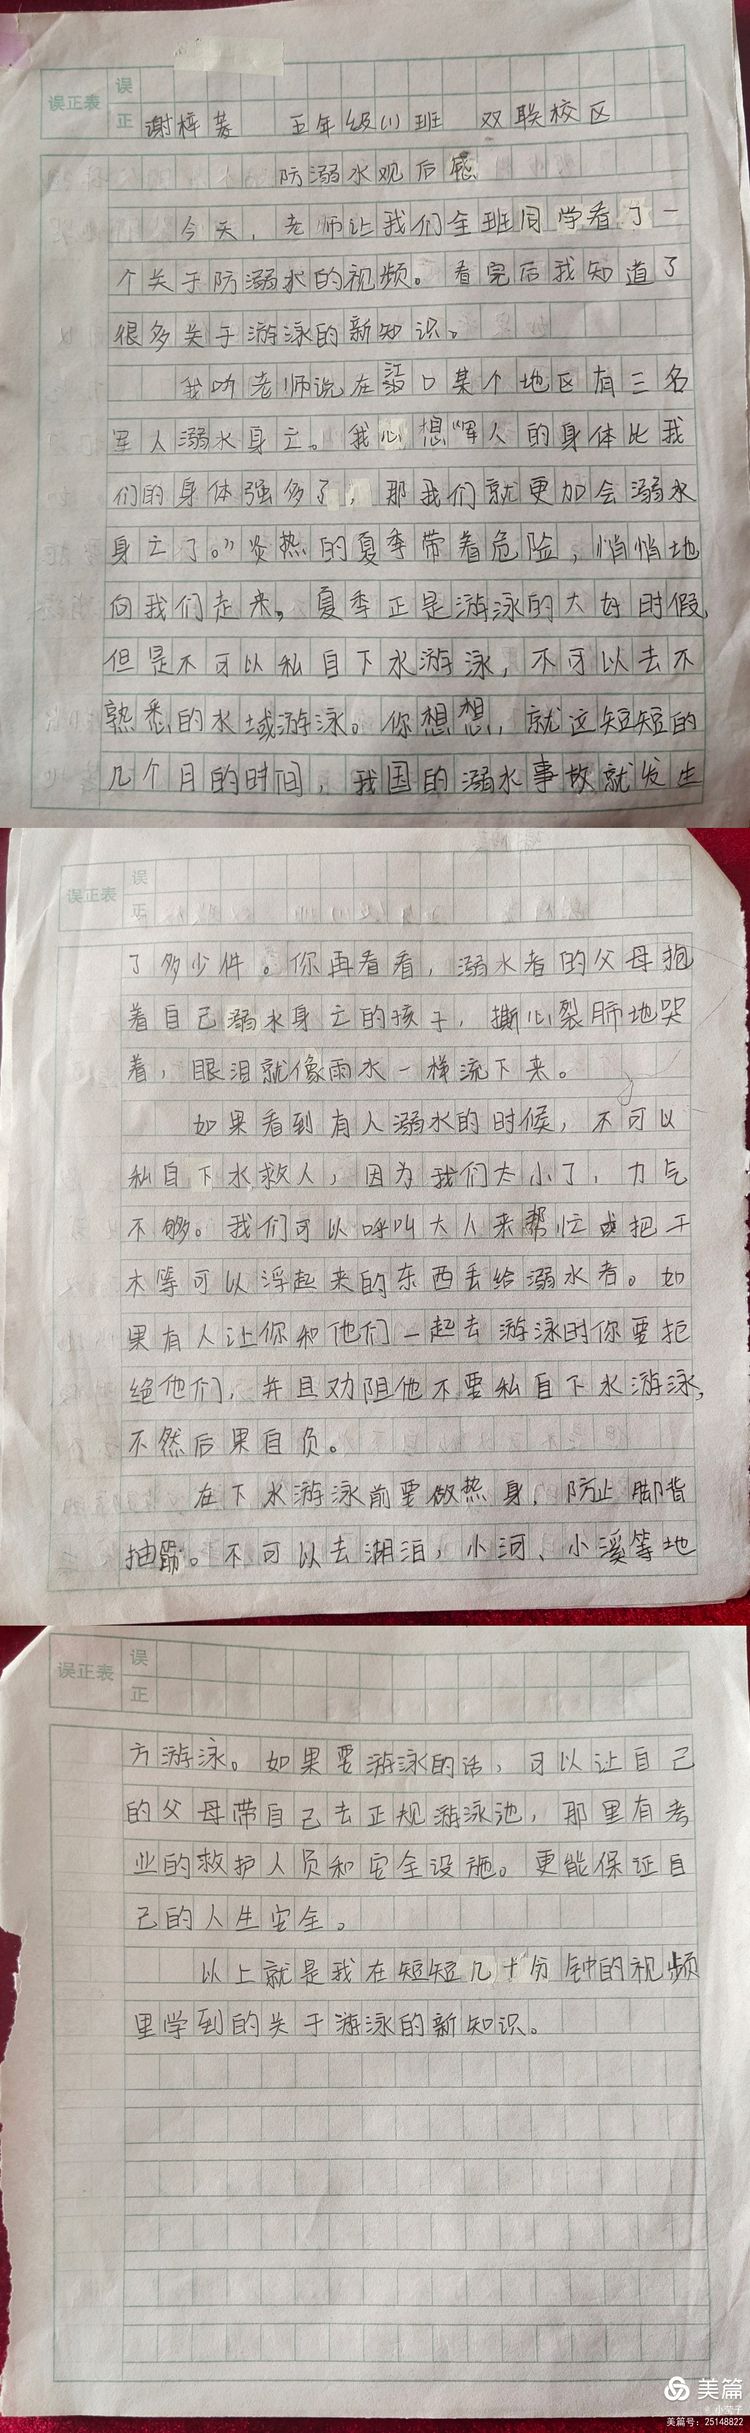 误正表
误
正
谢梓 五年级(1)班 双联校区
防溺水观后感
今天,老师让我们全班同学看了一
个关于防溺水的视频。看完后我知道了
很多关于游泳的新知识。
我听老师说在 口某个地区有三名
军人溺水身亡。我心想“军人的身体比我
们的身体强多了,那我们就更加会溺水
身亡了。”炎热的夏季带着危险,悄悄地
向我们走来。夏季正是游泳的大好时假,
但是不可以私自下水游泳,不可以去不
熟悉的水域游泳。你想想,就这短短的
几个月的时间,我国的溺水事故就发生
误正表
误
正
了多少件。你再看看,溺水者的父母抱
着自己溺水身亡的孩子,撕心裂肺地哭
着,眼泪就像雨水一样流下来。
如果看到有人溺水的时候,不可以
私自下水救人,因为我们太小了,力气
不够。我们可以呼叫大人来帮忙或把干
木等可以浮起来的东西丢给溺水者。如
果有人让你和他们一起去游泳时你要拒
绝他们,并且劝阻他不要私自下水游泳,
不然后果自负。
在下水游泳前要做热身,防止脚背
抽筋。不可以去湖泊,小河、小溪等地
误正表
误
正
方游泳。如果要游泳的话,可以让自己
的父母带自己去正规游泳池,那里有考
业的救护人员和安全设施。更能保证自
己的人生安全。
以上就是我在短短几十分钟的视频
里学到的关于游泳的新知识。
美篇
小荣子
美篇号:25148822